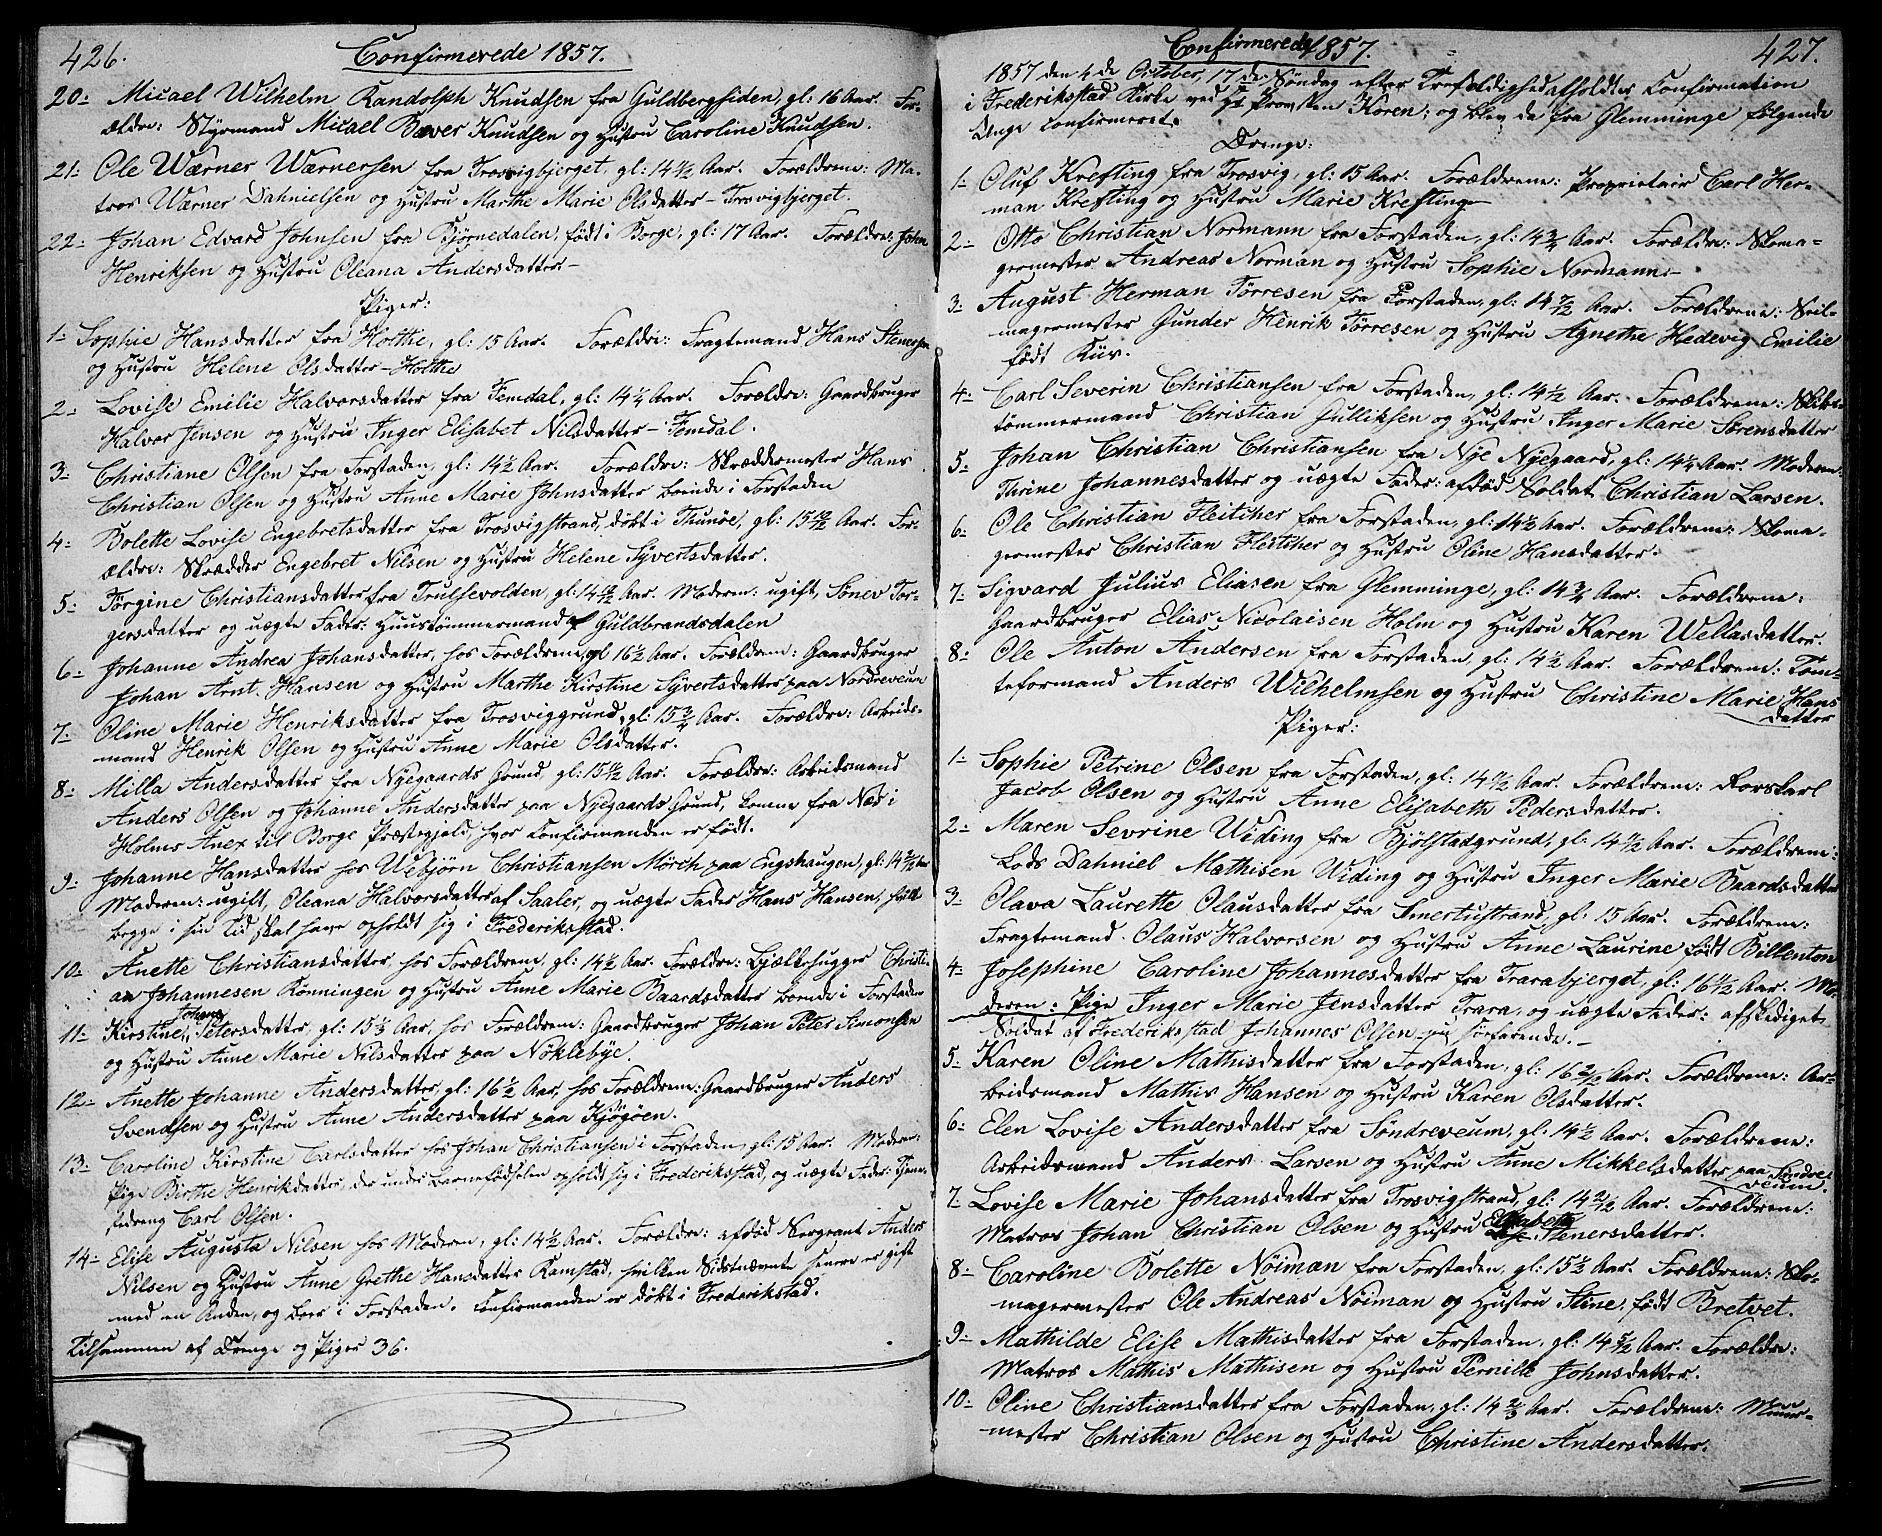 426.
Confirmerede 1857.
20- Micael Wilhelm Randolph Knudsen fra Guldbergsiden, gl: 16 Aar. For-
ældre: Styrmand Micael Bæver Knudsen og Hustru Caroline Knudsen.
21- Ole Wærner Wærnersen fra Trosvigbjerget, gl: 14 1/2 Aar. Forældrene: Ma-
tros Wærner Dahnielsen og Hustru Marthe Marie Olsdatter - Trosvigbjerget.
22- Johan Edvard Johnsen fra Bjørnedalen, født i Borge, gl: 17 Aar. Forældre: John
Henriksen og Hustru Oleana Andersdatter -
Piger:
1- Sophie Hansdatter fra Holthe, gl: 15 Aar. Forældre: Fragtemand Hans Stenersen
og Hustru Helene Olsdatter - Holthe
2- Lovise Emilie Halvorsdatter fra Femdal, gl: 14 1/4 Aar. Forældre: Gaardbruger
Halvor Jensen og Hustru Inger Elisabet Nilsdatter - Femdal.
3- Christiane Olsen fra Forstaden, gl: 14 1/2 Aar. Forældre: Skræddermester Hans
Christian Olsen og Hustru Anne Marie Johnsdatter boende i Forstaden
4- Bolette Lovise Engebretsdatter fra Trosvigstrand, døbt i Thunøe, gl: 15 10/12 Aar. For-
ældre: Skrædder Engebret Nilsen og Hustru Helene Syvertsdatter.
5- Torgine Christiansdatter fra Trulsevolden, gl: 14 Aar. Moderen: ugift, Torgersdatter og uægte Fader: Huustømmermand af Guldbrandsdalen
6- Johanne Andrea Johansdatter, hos Forældrene, gl 16 1/2 Aar. Forældrene: Gaardbruger
Johan Arnt Hansen og Hustru Marthe Kirstine Syvertsdatter paa Nordreveum
7- Oline Marie Henriksdatter fra Trosviggrund, gl: 15 3/4 Aar. Forældre: Arbeids-
mand Henrik Olsen og Hustru Anne Marie Olsdatter.
8- Milla Andersdatter fra Nyegaards Grund, gl: 15 Aar. Forældre: Arbeidsmand
Anders Olsen og Johanne Andersdatter paa Nyegaards Grund, komne fra Næs i
Holms Anex til Borge Præstegjeld, hvor Confirmanden er født.
9- Johanne Hansdatter hos Webjørn Christiansen Mørch paa Engshaugen, gl: 14 Aar
Moderen: ugift, Oleana Halvorsdatter af Saaler, og uægte Fader Hans Hansen, hvilke
begge i sin Tid skal have opholdt sig i Frederiksstad.
10- Anette Christiansdatter hos Forældrene, gl: 14 1/2 Aar. Forældre: Bjælkehugger Christi-
an Johannesen Rønningen og Hustru Anne Marie Baardsdatter boende i Forstaden
11- Kirstine Johanne Petersdatter, gl: 15 1/2 Aar, hos Forældrene: Gaardbruger Johan Peter Simonsen
og Hustru Anne Marie Nilsdatter paa Nøklebye.
12- Anette Johanne Andersdatter, gl: 16 1/2 Aar, hos Forældrene: Gaardbruger Anders
Svendsen og Hustru Anne Andersdatter paa Kjøgøen.
13- Caroline Kirstine Carlsdatter hos Johan Christiansen i Forstaden, gl: 15 Aar. Moderen:
Pige Birthe Henriksdatter, der under Barnefødselen opholdt sig i Frederiksstad, og uægte Fader: Tjene-
stedreng Carl Olsen.
14- Elise Augusta Nilsen hos Moderen, gl: 14 1/2 Aar. Forældre: afdød Sergeant Anders
Nilsen og Hustru Anne Grethe Hansdatter Ramstad, hvilken Sidstnævnte senere er gift
med en Anden, og boer i Forstaden. Confirmanden er døbt i Frederikstad.
Tilsammen af Drenge og Piger 36.
Confirmerede 1857.
427.
1857 den 4de October, 17de Søndag efter Trefoldighed afholdtes Confirmation
i Frederiksstad Kirke ved Hr Provsten Koren; og blev da fra Glemminge følgende
Unge Confirmeret.
Drenge:
1- Oluf Krefting fra Trosvig, gl: 15 Aar. Forældrene: Proprietair Carl Her-
man Krefting og Hustru Marie Krefting
2- Otto Christian Normann fra Forstaden, gl: 14 3/4 Aar. Forældre: Skoma-
germester Andreas Norman og Hustru Sophie Normann -
3- August Herman Tørresen fra Forstaden, gl: 14 7/12 Aar. Forældrene: Seil-
magermester Gunder Henrik Tørresen og Hustru Agnethe Hedevig Emilie
født
4- Carl Severin Christiansen fra Forstaden, gl: 14 1/2 Aar. Forældrene: Skibs-
tømmermand Christian Gulliksen og Hustru Inger Marie Sørensdatter
5- Johan Christian Christiansen fra Nye Nyegaard, gl: 14 1/4 Aar. Moderen:
Thrine Johannesdatter og uægte Fader: afdød Soldat Christian Larsen.
6- Ole Christian Fleischer fra Forstaden, gl: 14 1/2 Aar. Forældrene: Skoma-
germester Christian Fleischer og Hustru Oline Hansdatter.
7- Sigvard Julius Eliasen fra Glemminge, gl: 14 3/4 Aar. Forældrene:
Gaardbruger Elias Nicolaisen Holm og Hustru Karen Wellasdatter.
8- Ole Anton Andersen fra Forstaden, gl: 14 1/2 Aar. Forældrene: Tom-
teformand Anders Wilhelmsen og Hustru Christine Marie Hans
datter
Piger:
1- Sophie Petrine Olsen fra Forstaden, gl: 14 Aar. Forældrene: Rorskarl
Jacob Olsen og Hustru Anne Elisabeth Pedersdatter.
2- Maren Sevrine Widing fra Bjølstadgrund, gl: 14 Aar. Forældrene:
Lods Dahniel Mathisen Widing og Hustru Inger Marie Baardsdatter
3- Olava Laurette Olausdatter fra Smertustrand, gl: 15 Aar. Forældrene:
Fragtemand Olaus Halvorsen og Hustru Anne Laurine født Billenton
4- Josephine Caroline Johannesdatter fra Trarabjerget, gl: 16 1/2 Aar. Mo-
deren: Pige Inger Marie Jensdatter Trara, og uægte Fader: afskediget
Soldat af Frederiksstad Johannes Olsen - nu søefarende. -
5- Karen Oline Mathisdatter fra Forstaden, gl: 16 Aar. Forældrene: Ar-
beidsmand Mathis Hansen og Hustru Karen Olsdatter.
6- Elen Lovise Andersdatter fra Søndreveum, gl: 14 1/2 Aar. Forældrene:
Arbeidsmand Anders Larsen og Hustru Anne Mikkelsdatter paa Søndre-
veum.
7- Lovise Marie Johansdatter fra Trosvigstrand, gl: 14 Aar. Forældrene:
Matros Johan Christian Olsen og Hustru Elisabeth Stenersdatter.
8- Caroline Bolette Nøiman fra Forstaden, gl: 15 1/2 Aar. Forældrene: Sko-
magermester Ole Andreas Nøiman og Hustru Stine, født Bretvet.
9- Mathilde Elise Mathisdatter fra Forstaden, gl: 14 Aar. Forældre:
Matros Mathis Mathisen og Hustru Pernille Johnsdatter.
10- Oline Christiansdatter fra Forstaden, gl: 14 2/3 Aar. Forældrene: Muur-
mester Christian Olsen og Hustru Christine Andersdatter.